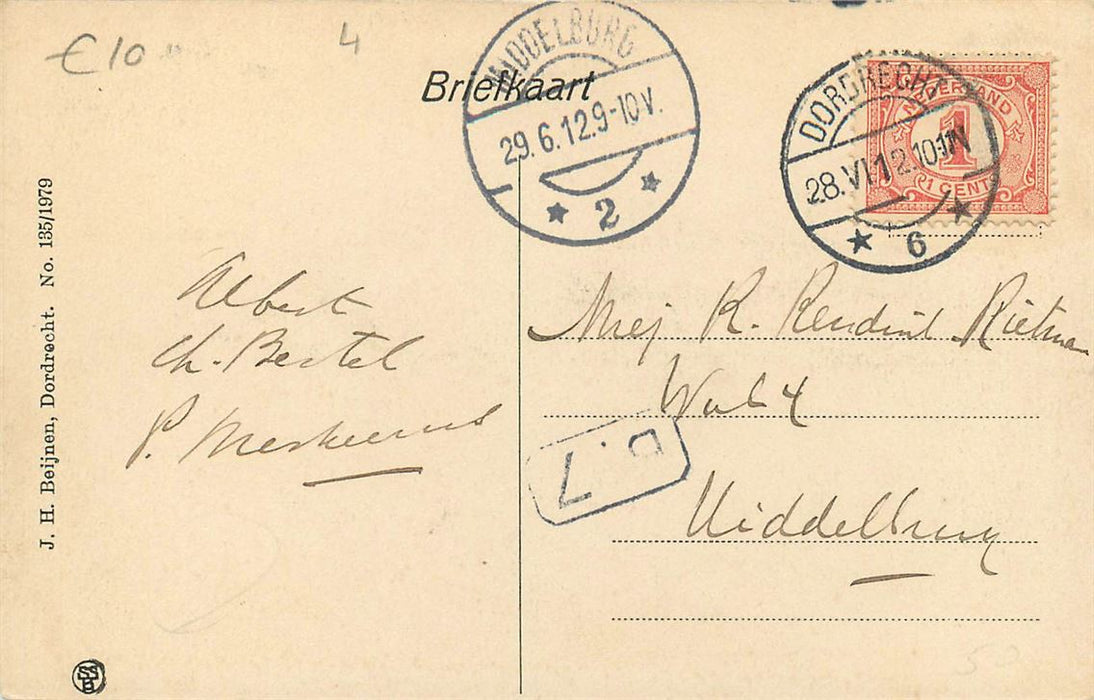 €10
4
Briefkaart
MIDDELBURG
29.6.12.9-10V.
2
DORDRECHT
28.VI.12.10-11V
6
NEDERLAND
1
1 CENT
J. H. Beijnen, Dordrecht. No. 135/1979
Albert
Ch. Bestel
P.
Mej K. Rietman
Wal 4
D. 7
Middelburg
50
SS
B